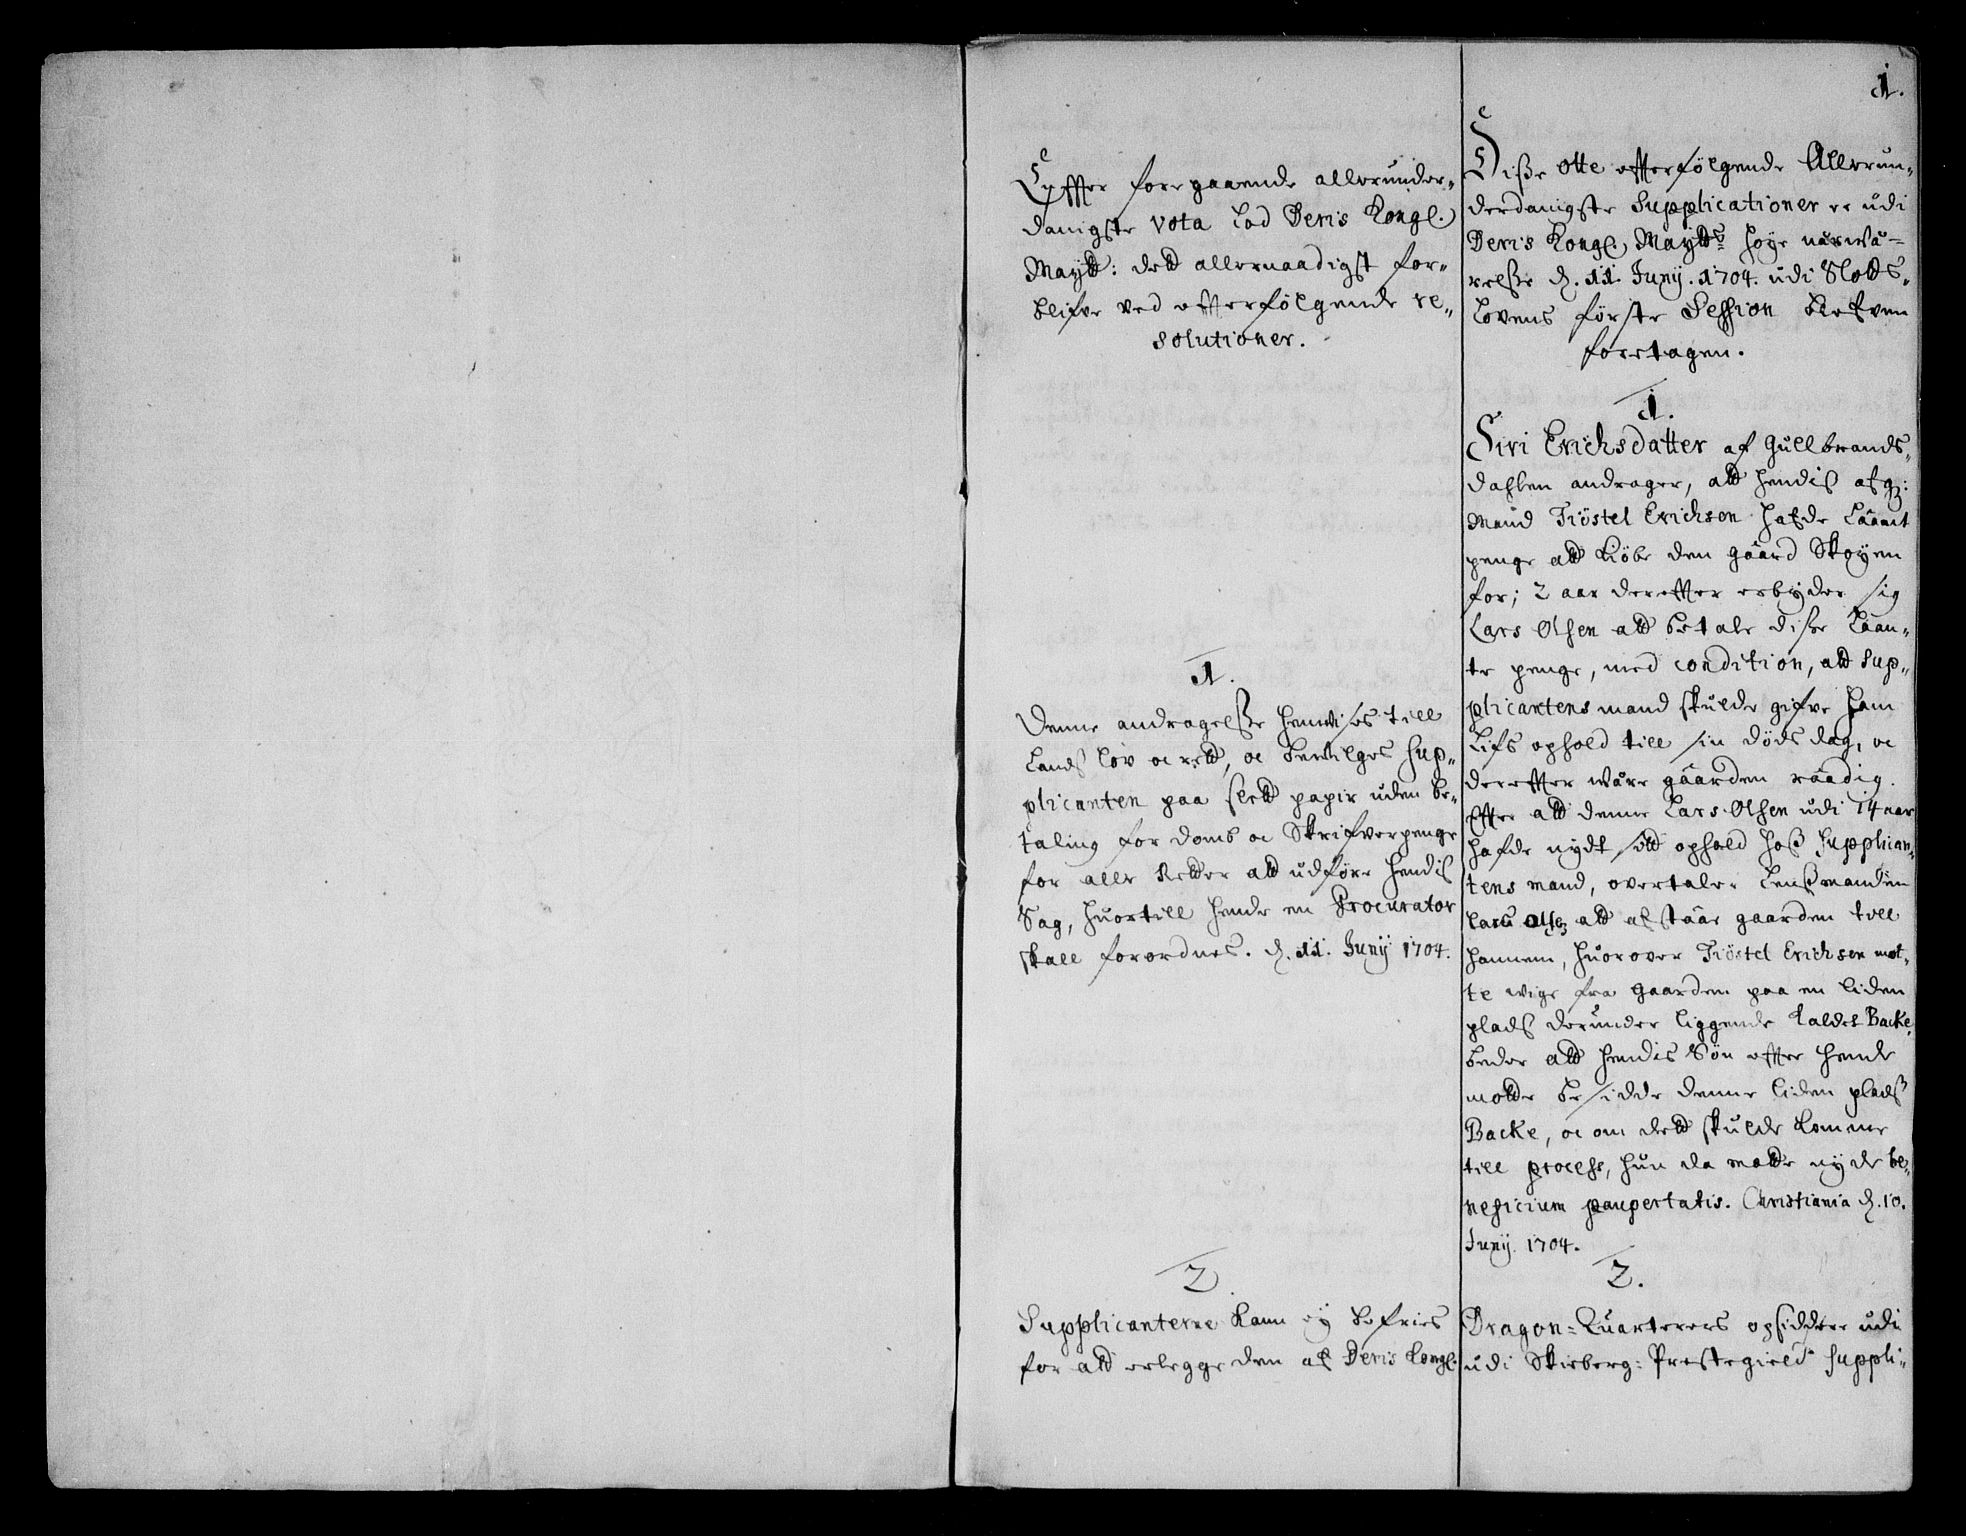 1.
Efter foregaaende allerunder-
danigste vota lod Deris Kongl.
Maytt: dett allernaadigst for-
blifve ved efterfølgende re-
solutioner.
1.
Denne andragelsse henvises till
Lands lov oc rett, oc bevilges Sup-
plicanten paa slett papir uden be-
taling for domb oc Skrifverpenge
for alle Retter att udføre hendis
Sag, huortill hende en Procurator
skall forordnes. d. 11. Junij 1704.
2.
Supplicanterne kann ej befries
for att erlegge den af Deris Kongl.
Disse otte efterfølgende Allerun-
derdanigste Supplicationer er udi
Deris Kongl. Maytts høye nærwæ-
relsse d. 11. Junij. 1704. udi Slotts-
Lovens første Session blefven
foretagen.
1.
Siri Erichsdatter af Gullbrands-
dahlen andrager, att hendis afg:
Mand Tiøstel Erichsen hafde laant
penge att kiøbe den gaard Skoyen
for; 2 aar derefter erbyder sig
Lars Olsen att betale disse laan-
te penge, med condition, att Sup-
plicantens mand skulde gifve ham
Lifs ophold till sin døds dag, oc
derefter wære gaarden raadig.
Efter att denne Lars Olsen udi 14 aar
hafde nydt sitt ophold hoss Supplican-
tens mand, overtaler Lenssmanden
Lars Olsen att afstaae gaarden till
hannem, huorover Tiøstel Erichsen mot-
te wige fra gaarden paa en liden
plads derunder liggende kaldet Backe,
beder att hendis Søn efter hende
motte besidde denne liden plads
Backe, oc om dett skulde komme
till process, hun da motte nyde be-
neficium paupertatis. Christiania d. 10.
Junij 1704.
2.
Dragon-Quarterers opsiddere udi
udi Skieberg: Prestegield Suppli-